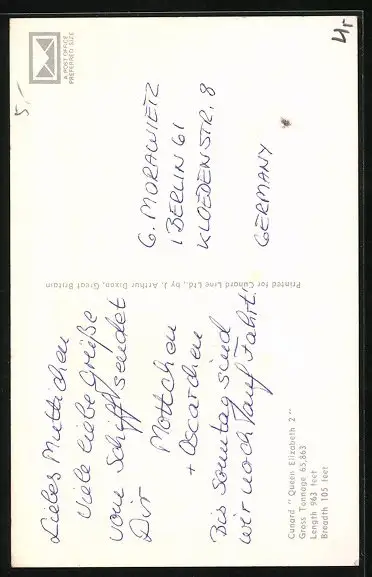 Liebes Muttichen
viele liebe Grüße
vom Schiff sendet
Dir
Mottchen
+ Oscarchen
Bis Sonntag sind
wir noch auf Fahrt!
Cunard "Queen Elizabeth 2"
Gross Tonnage 65,863
Length 963 feet
Breadth 105 feet
Printed for Cunard Line Ltd., by J. Arthur Dixon, Great Britain
A POST OFFICE
PREFERRED SIZE
G. MORAWIETZ
1 BERLIN 61
KLOEDENSTR. 8
GERMANY
5,-